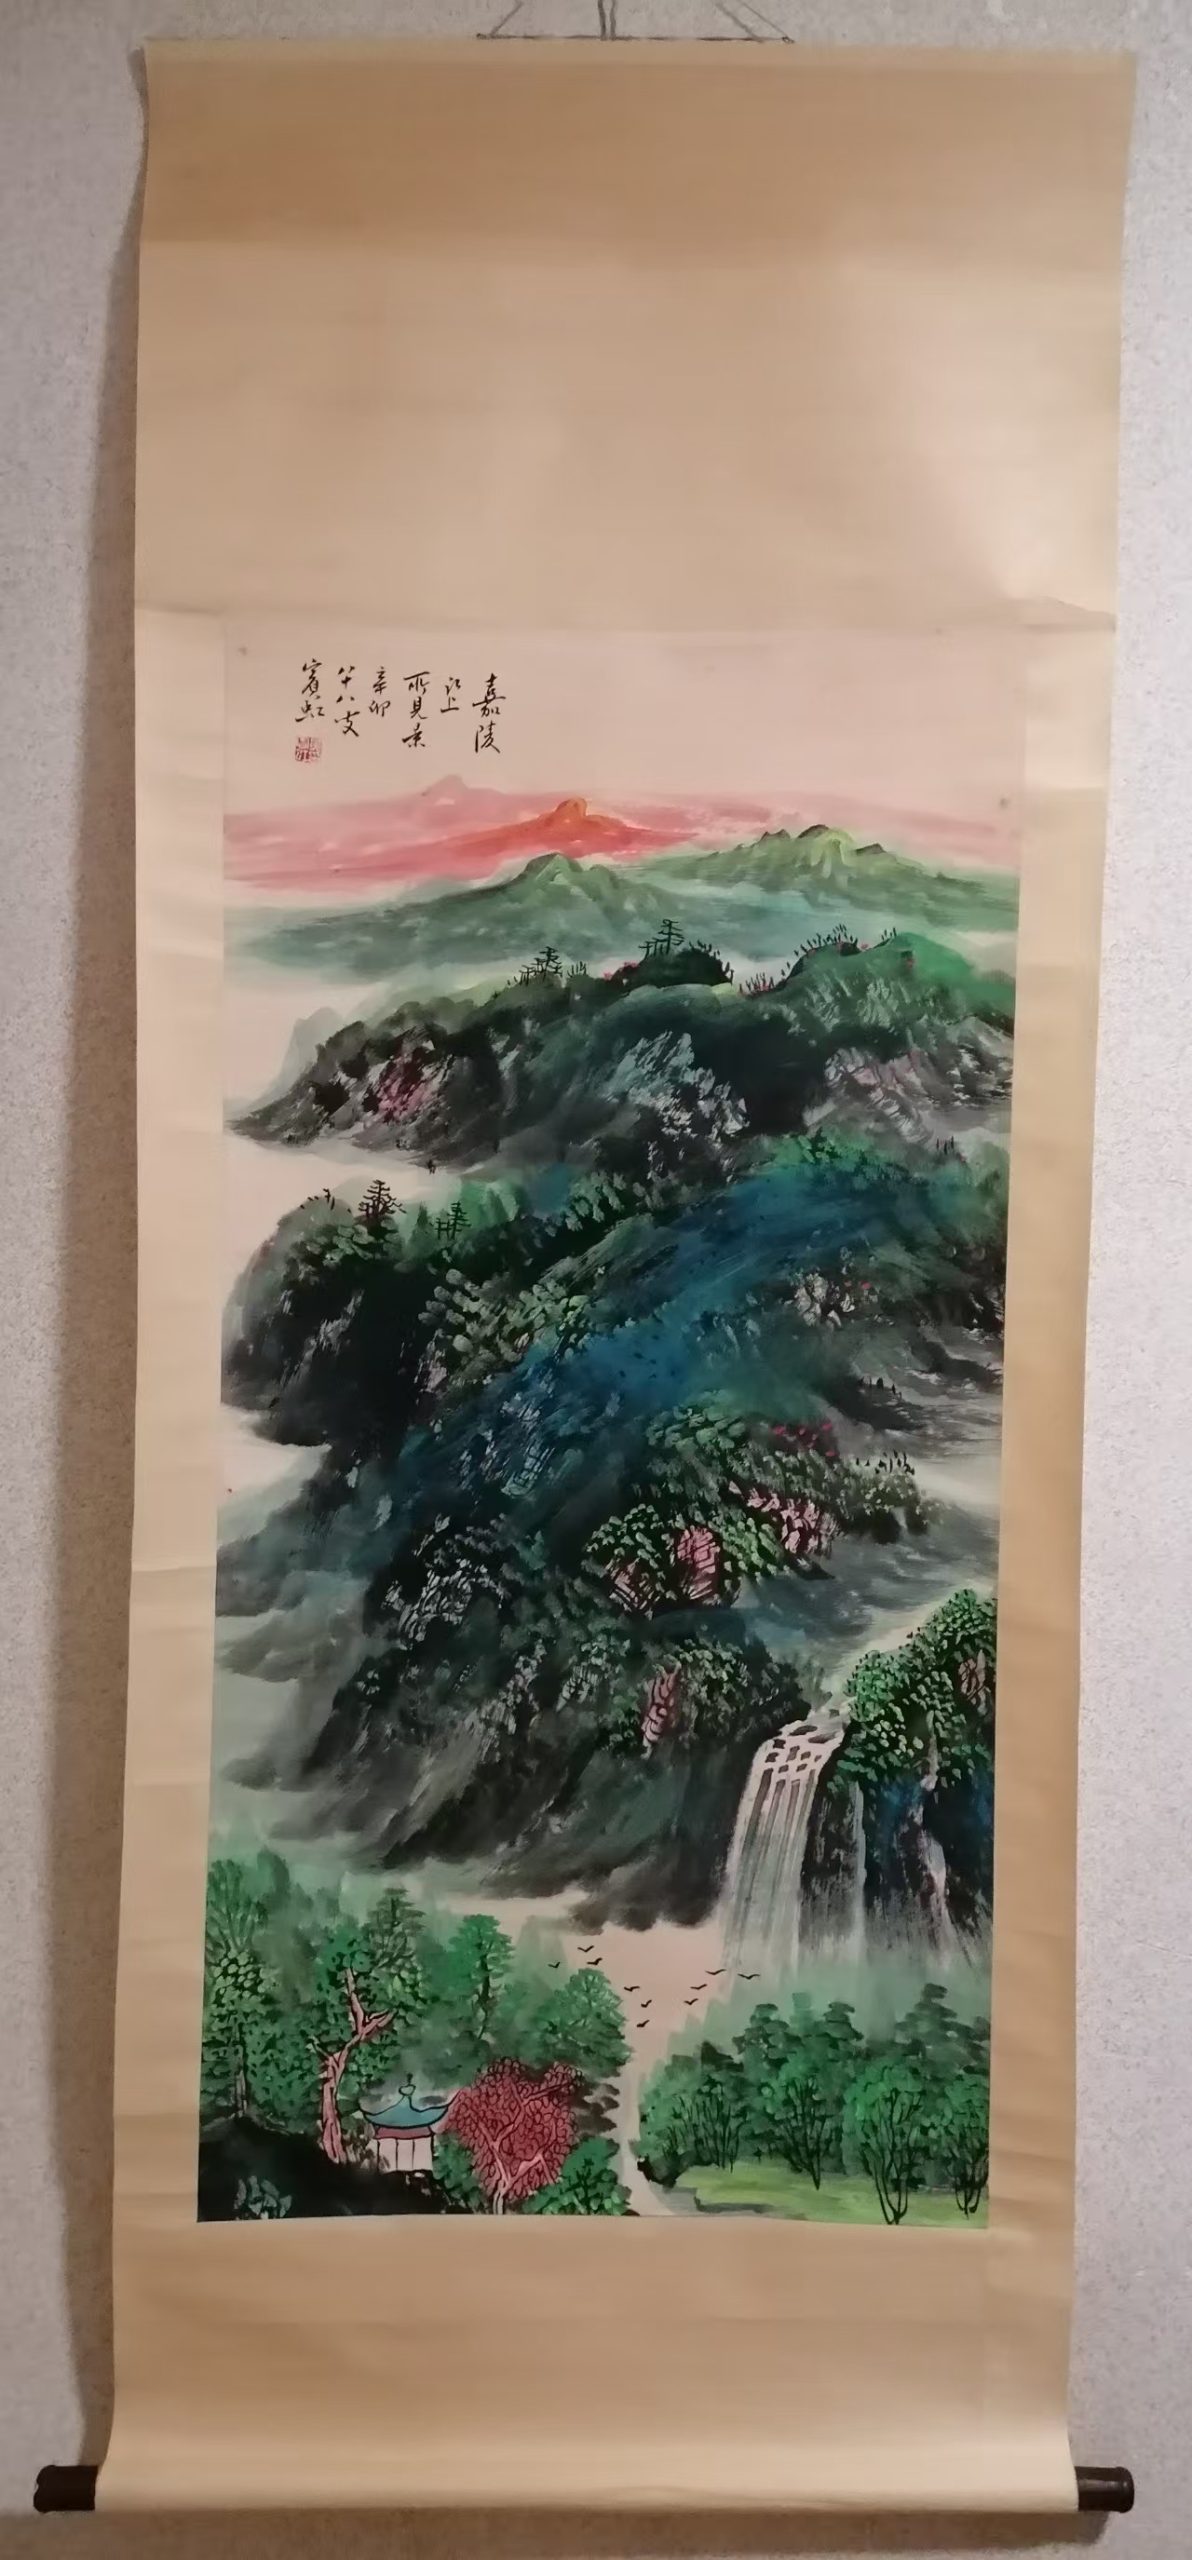 嘉陵
江上
所見景
辛卯
八十八叟
賓虹